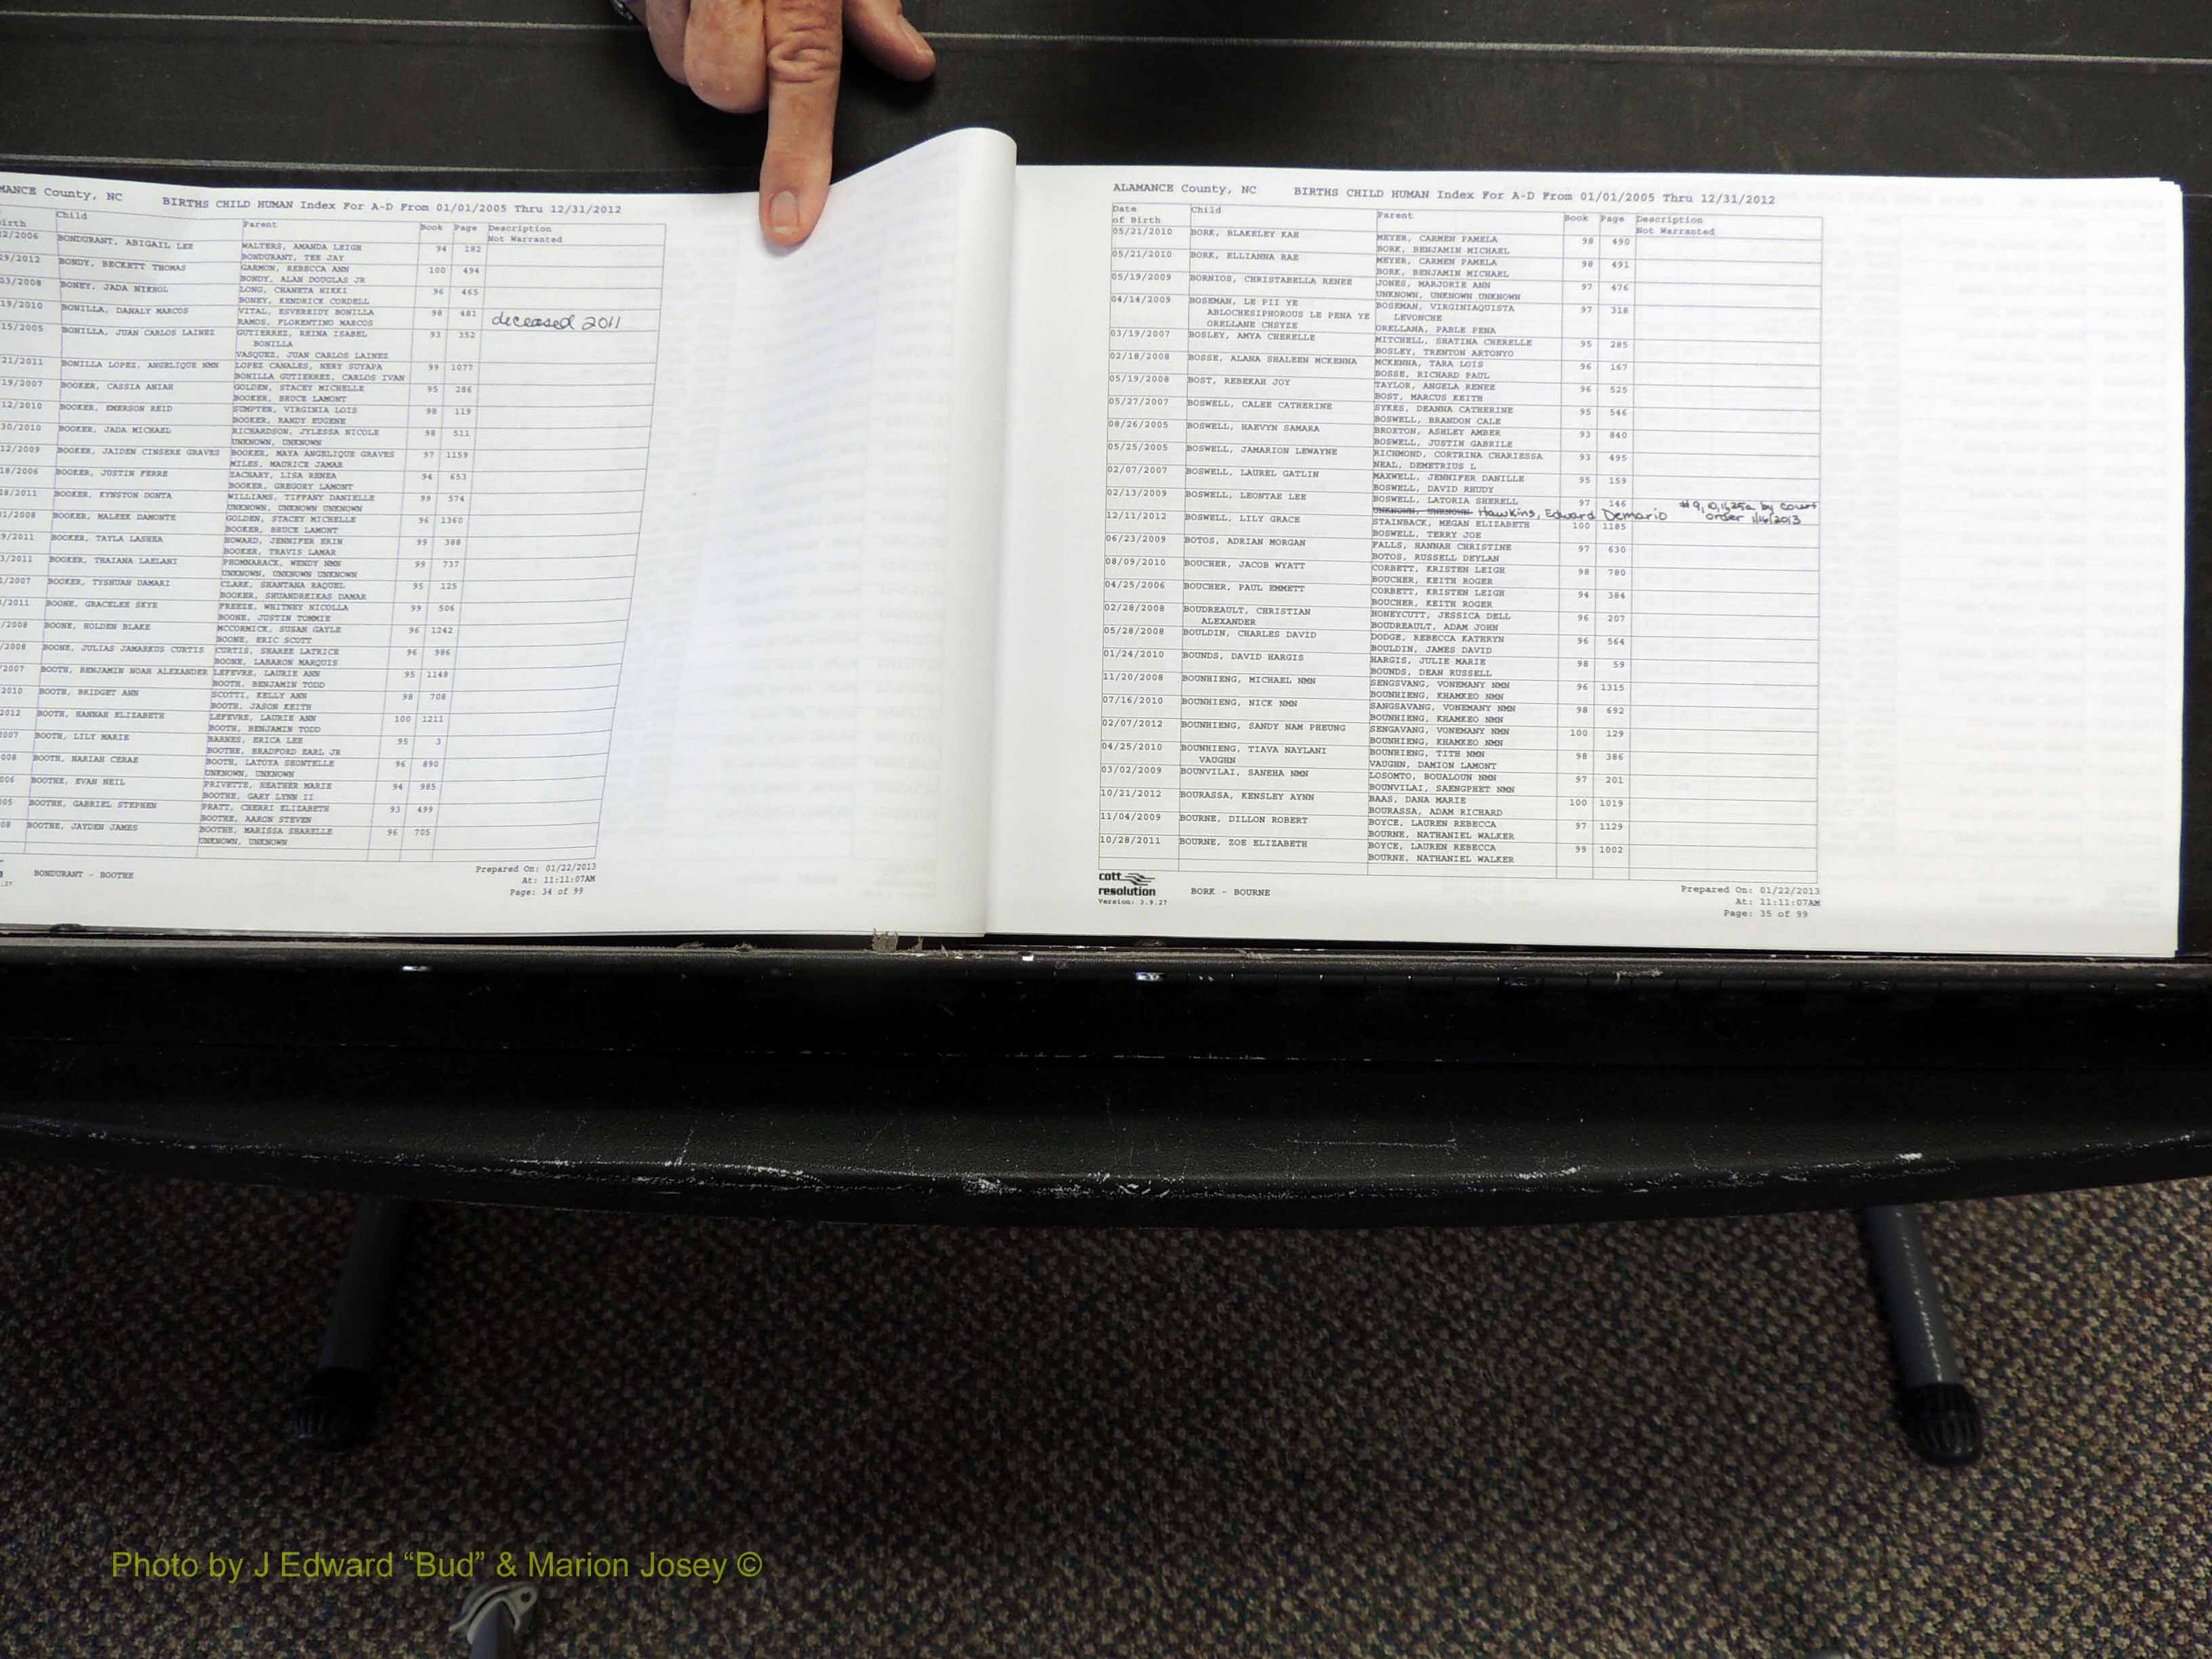 MANCE County, NC BIRTHS CHILD HUMAN Index For A-D From 01/01/2005 Thru 12/31/2012
irth Child Parent Book Page Description
Not Warranted
2/2006 BONDURANT, ABIGAIL LEE WALTERS, AMANDA LEIGH 94 182
BONDURANT, TEE JAY
9/2012 BONDY, BECKETT THOMAS GARMON, REBECCA ANN 100 494
BONDY, ALAN DOUGLAS JR
03/2008 BONEY, JADA NIKHOL LONG, CHANETA NIKKI 96 465
BONEY, KENDRICK CORDELL
19/2010 BONILLA, DANALY MARCOS VITAL, ESVEREIDY BONILLA 98 481 deceased 2011
RAMOS, FLORENTINO MARCOS
15/2005 BONILLA, JUAN CARLOS LAINEZ GUTIERREZ, REINA ISABEL 93 352
BONILLA
VASQUEZ, JUAN CARLOS LAINEZ
21/2011 BONILLA LOPEZ, ANGELIQUE NMN LOPEZ CANALES, NERY SUYAPA 99 1077
BONILLA GUTIERREZ, CARLOS IVAN
19/2007 BOOKER, CASSIA ANIAH GOLDEN, STACEY MICHELLE 95 286
BOOKER, BRUCE LAMONT
12/2010 BOOKER, EMERSON REID SUMPTER, VIRGINIA LOIS 98 119
BOOKER, RANDY EUGENE
30/2010 BOOKER, JADA MICHAEL RICHARDSON, JYLESSA NICOLE 98 511
UNKNOWN, UNKNOWN
12/2009 BOOKER, JAIDEN CINSERE GRAVES BOOKER, MAYA ANGELIQUE GRAVES 97 1159
MILES, MAURICE JAMAR
18/2006 BOOKER, JUSTIN FERRE ZACHARY, LISA RENEA 94 653
BOOKER, GREGORY LAMONT
28/2011 BOOKER, KYNSTON DONTA WILLIAMS, TIFFANY DANIELLE 99 574
UNKNOWN, UNKNOWN UNKNOWN
1/2008 BOOKER, MALEEK DAMONTE GOLDEN, STACEY MICHELLE 96 1360
BOOKER, BRUCE LAMONT
9/2011 BOOKER, TAYLA LASHEA HOWARD, JENNIFER ERIN 99 388
BOOKER, TRAVIS LAMAR
3/2011 BOOKER, THAIANA LAELANI PHOMNARACK, WENDY NMN 99 737
UNKNOWN, UNKNOWN UNKNOWN
/2007 BOOKER, TYSHUAN DAMARI CLARK, SHANTANA RAQUEL 95 125
BOOKER, SHUANDREIKAS DAMAR
/2011 BOONE, GRACELEE SKYE FREEZE, WHITNEY NICOLLA 99 506
BOONE, JUSTIN TOMMIE
/2008 BOONE, HOLDEN BLAKE MCCORMICK, SUSAN GAYLE 96 1242
BOONE, ERIC SCOTT
/2008 BOONE, JULIAS JAMARKUS CURTIS CURTIS, SHAREE LATRICE 96 986
BOONE, LABARON MARQUIS
2007 BOOTH, BENJAMIN NOAH ALEXANDER LEFEVRE, LAURIE ANN 95 1148
BOOTH, BENJAMIN TODD
2010 BOOTH, BRIDGET ANN SCOTTI, KELLY ANN 98 708
BOOTH, JASON KEITH
2012 BOOTH, HANNAH ELIZABETH LEFEVRE, LAURIE ANN 100 1211
BOOTH, BENJAMIN TODD
007 BOOTH, LILY MARIE BARNES, ERICA LEE 95 3
BOOTHE, BRADFORD EARL JR
008 BOOTH, NARIAH CERAE BOOTH, LATOYA SHONTELLE 96 890
UNKNOWN, UNKNOWN
006 BOOTHE, EVAN NEIL PRIVETTE, HEATHER MARIE 94 985
BOOTHE, GARY LYNN II
05 BOOTHE, GABRIEL STEPHEN PRATT, CHERRI ELIZABETH 93 499
BOOTHE, AARON STEVEN
08 BOOTHE, JAYDEN JAMES BOOTHE, MARISSA SHARELLE 96 705
UNKNOWN, UNKNOWN
.27 BONDURANT - BOOTHE Prepared On: 01/22/2013
At: 11:11:07AM
Page: 34 of 99
ALAMANCE County, NC BIRTHS CHILD HUMAN Index For A-D From 01/01/2005 Thru 12/31/2012
Date Child Parent Book Page Description
of Birth Not Warranted
05/21/2010 BORK, BLAKELEY KAE MEYER, CARMEN PAMELA 98 490
BORK, BENJAMIN MICHAEL
05/21/2010 BORK, ELLIANNA RAE MEYER, CARMEN PAMELA 98 491
BORK, BENJAMIN MICHAEL
05/19/2009 BORNIOS, CHRISTABELLA RENEE JONES, MARJORIE ANN 97 476
UNKNOWN, UNKNOWN UNKNOWN
04/14/2009 BOSEMAN, LE PII YE BOSEMAN, VIRGINIAQUISTA 97 318
ABLOCHESIPHOROUS LE PENA YE LEVONCHE
ORELLANE CHSYZE ORELLANA, PABLE PENA
03/19/2007 BOSLEY, AMYA CHERELLE MITCHELL, SHATINA CHERELLE 95 285
BOSLEY, TRENTON ARTONYO
02/18/2008 BOSSE, ALANA SHALEEN MCKENNA MCKENNA, TARA LOIS 96 167
BOSSE, RICHARD PAUL
05/19/2008 BOST, REBEKAH JOY TAYLOR, ANGELA RENEE 96 525
BOST, MARCUS KEITH
05/27/2007 BOSWELL, CALEE CATHERINE SYKES, DEANNA CATHERINE 95 546
BOSWELL, BRANDON CALE
08/26/2005 BOSWELL, HAEVYN SAMARA BROXTON, ASHLEY AMBER 93 840
BOSWELL, JUSTIN GABRILE
05/25/2005 BOSWELL, JAMARION LEWAYNE RICHMOND, CORTRINA CHARIESSA 93 495
NEAL, DEMETRIUS L
02/07/2007 BOSWELL, LAUREL GATLIN MAXWELL, JENNIFER DANILLE 95 159
BOSWELL, DAVID RHUDY
02/13/2009 BOSWELL, LEONTAE LEE BOSWELL, LATORIA SHERELL 97 146 #9,10,11,25a by court
UNKNOWN, UNKNOWN Hawkins, Edward Demario order 1/16/2013
12/11/2012 BOSWELL, LILY GRACE STAINBACK, MEGAN ELIZABETH 100 1185
BOSWELL, TERRY JOE
06/23/2009 BOTOS, ADRIAN MORGAN FALLS, HANNAH CHRISTINE 97 630
BOTOS, RUSSELL DEYLAN
08/09/2010 BOUCHER, JACOB WYATT CORBETT, KRISTEN LEIGH 98 780
BOUCHER, KEITH ROGER
04/25/2006 BOUCHER, PAUL EMMETT CORBETT, KRISTEN LEIGH 94 384
BOUCHER, KEITH ROGER
02/28/2008 BOUDREAULT, CHRISTIAN HONEYCUTT, JESSICA DELL 96 207
ALEXANDER BOUDREAULT, ADAM JOHN
05/28/2008 BOULDIN, CHARLES DAVID DODGE, REBECCA KATHRYN 96 564
BOULDIN, JAMES DAVID
01/24/2010 BOUNDS, DAVID HARGIS HARGIS, JULIE MARIE 98 59
BOUNDS, DEAN RUSSELL
11/20/2008 BOUNHIENG, MICHAEL NMN SENGSVANG, VONEMANY NMN 96 1315
BOUNHIENG, KHAMKEO NMN
07/16/2010 BOUNHIENG, NICK NMN SANGSAVANG, VONEMANY NMN 98 692
BOUNHIENG, KHAMKEO NMN
02/07/2012 BOUNHIENG, SANDY NAM PHEUNG SENGAVANG, VONEMANY NMN 100 129
BOUNHIENG, KHAMKEO NMN
04/25/2010 BOUNHIENG, TIAVA NAYLANI BOUNHIENG, TITH NMN 98 386
VAUGHN VAUGHN, DAMION LAMONT
03/02/2009 BOUNVILAI, SANEHA NMN LOSOMTO, BOUALOUN NMN 97 201
BOUNVILAI, SAENGPHET NMN
10/21/2012 BOURASSA, KENSLEY AYNN BAAS, DANA MARIE 100 1019
BOURASSA, ADAM RICHARD
11/04/2009 BOURNE, DILLON ROBERT BOYCE, LAUREN REBECCA 97 1129
BOURNE, NATHANIEL WALKER
10/28/2011 BOURNE, ZOE ELIZABETH BOYCE, LAUREN REBECCA 99 1002
BOURNE, NATHANIEL WALKER
cott
resolution BORK - BOURNE Prepared On: 01/22/2013
Version: 3.9.27 At: 11:11:07AM
Page: 35 of 99
Photo by J Edward “Bud” & Marion Josey ©